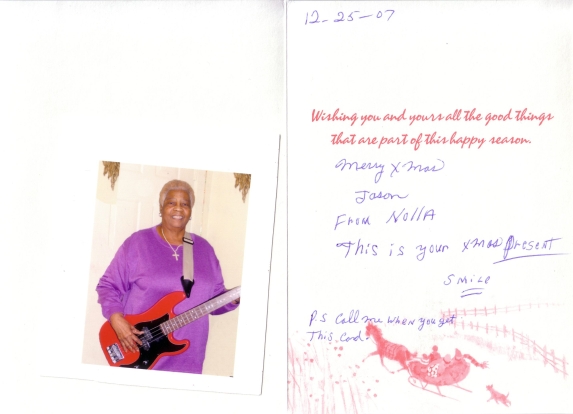 12-25-07
Wishing you and yours all the good things
that are part of this happy season.
Merry Xmas
Jason
From NollA
This is your xmas Present
Smile
P.S Call me when you get
This Card